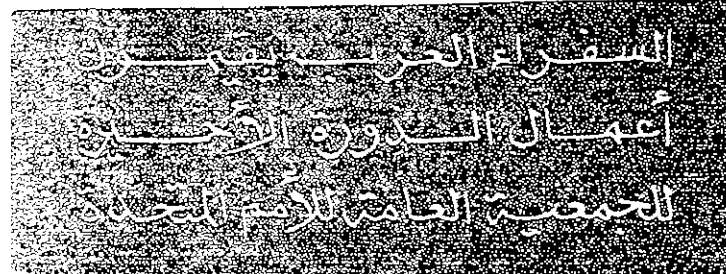 السفراء العرب يقيمون
أعمال الدورة الأخيرة
للجمعية العامة للأمم المتحدة